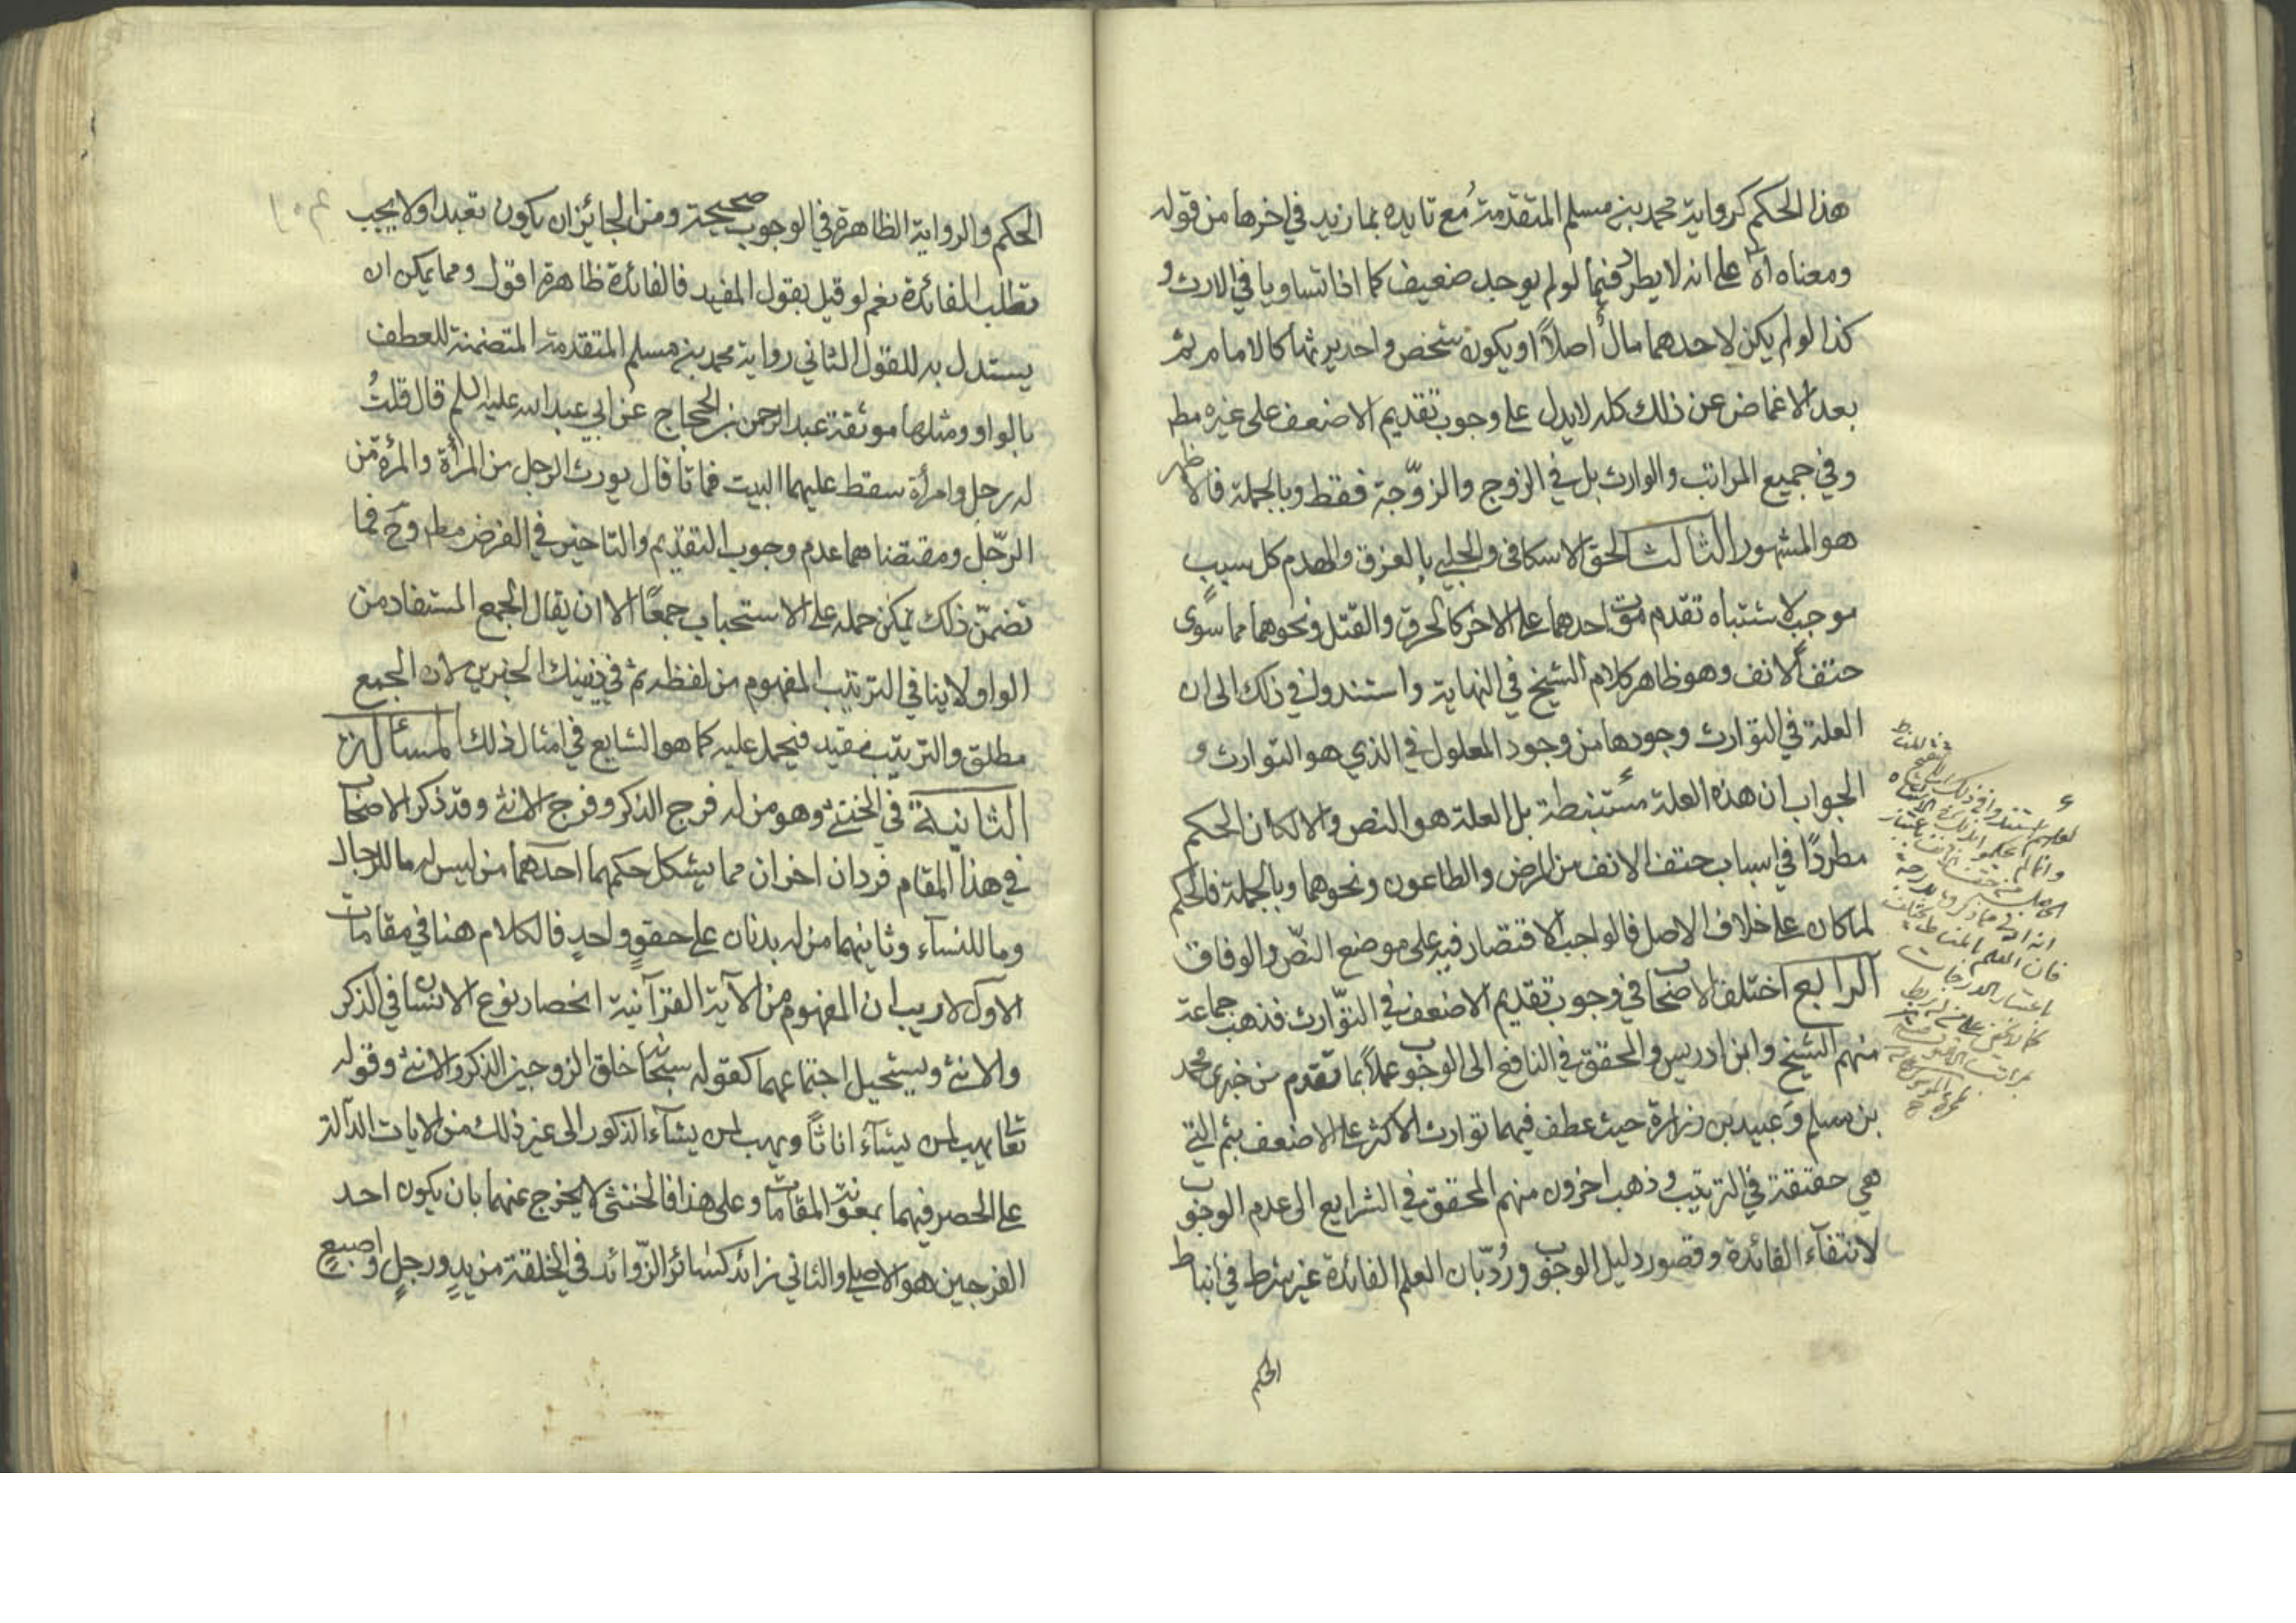 هذا الحكم كرواية محمد بن مسلم المتقدمة مع تايده بما زيد في اخرها من قوله
ومعناه اه على انه لا يطرد فيما لو لم يوجد ضعيف كما اذا تساويا في الارث و
كذا لو لم يكن لاحدهما مال اصلاً او يكون شخص واحد يرثهما كالامام ثم
بعد الاغماض عن ذلك كله لا يدل على وجوب تقديم الاضعف على غيره مط
وفي جميع المراتب والوارث بل في الزوج والزوّجة فقط وبالجملة فالاظهر
هو المشهور الثالث الحق الاسكافي والحلبي بالغرق والهدم كل سبب
موجب لاشتباه تقدم موت احدهما على الاخر كالحرق والقتل ونحوهما مما سوى
حتف الانف وهو ظاهر كلام الشيخ في النهاية واستندوا في ذلك الى ان
العلة في التوارث وجودها من وجود المعلول في الذي هو التوارث و
الجواب ان هذه العلة مستنبطة بل العلة هو النص والا لكان الحكم
مطردًا في اسباب حتف الانف من المرض والطاعون ونحوهما وبالجملة فالحكم
لما كان على خلاف الاصل فالواجب الاقتصار فيه على موضع النصّ والوفاق
الرابع اختلف الاصحاب في وجوب تقديم الاضعف في التوّارث فذهب جماعة
منهم الشيخ وابن ادريس والمحقق في النافع الى الوجوب عملاً بما تقدم من خبرى محمد
بن مسلم وعبيد بن زرارة حيث عطف فيهما توارث الاكثر على الاضعف بثم التي
هي حقيقة في الترتيب وذهب اخرون منهم المحقق في الشرايع الى عدم الوجوب
لانتفآء الفائدة وقصور دليل الوجوب ورُدّ بان العلم الفائدة غير شرط في انباط
الحكم
لعلهم استندوا في ذلك
الحكم والرواية الظاهرة في الوجوب صحيحة ومن الجائز ان يكون تعبدا ولا يجب
تطلب الفائدة نعم لو قيل بقول المفيد فالفائدة ظاهرة اقول ومما يمكن ان
يستدل به للقول الثاني رواية محمد بن مسلم المتقدمة المتضمنة للعطف
بالواو ومثلها موثقة عبد الرحمن بن الحجاج عن ابي عبد الله عليه السلم قال قلتُ
له رجل وامرأة سقط عليهما البيت فماتا قال يورث الرجل من المرأة والمرءة من
الرّجل ومقتضاهما عدم وجوب التقديم والتاخير في الفرض مط وح فما
تضمّن ذلك يمكن حمله على الاستحباب جمعًا الا ان يقال الجمع المستفاد من
الواو لا ينافي الترتيب المفهوم من لفظه ثم في ذينك الخبرين لان الجمع
مطلق والترتيب مقيد فيحمل عليه كما هو الشايع في امثال ذلك المسئالة
الثانية في الخنثى وهو من له فرج الذكر وفرج الانثى وقد ذكر الاصحاب
في هذا المقام فردان اخران مما يشكل حكمهما احدهما من ليس له ما للرجال
وما للنسآء وثانيهما من له بدنان على حقوٍ واحدٍ فالكلام هنا في مقامات
الاوّل لا ريب ان المفهوم من الآية القرآنية انحصار نوع الانسان في الذكر
والانثى ويستحيل اجتماعهما كقوله سبحانه خلق الزوجين الذكر والانثى وقوله
تعالى يهب لمن يشآء اناثاً ويهب لمن يشآء الذكور الى غير ذلك من الايات الدآلة
على الحصر فيهما بمعونة المقامات وعلى هذا فالخنثى لا يخرج عنهما بان يكون احد
الفرجين هو الاصلي والثاني زائد كسائر الزّوائد في الخلقة من يدٍ ورجلٍ واصبعٍ